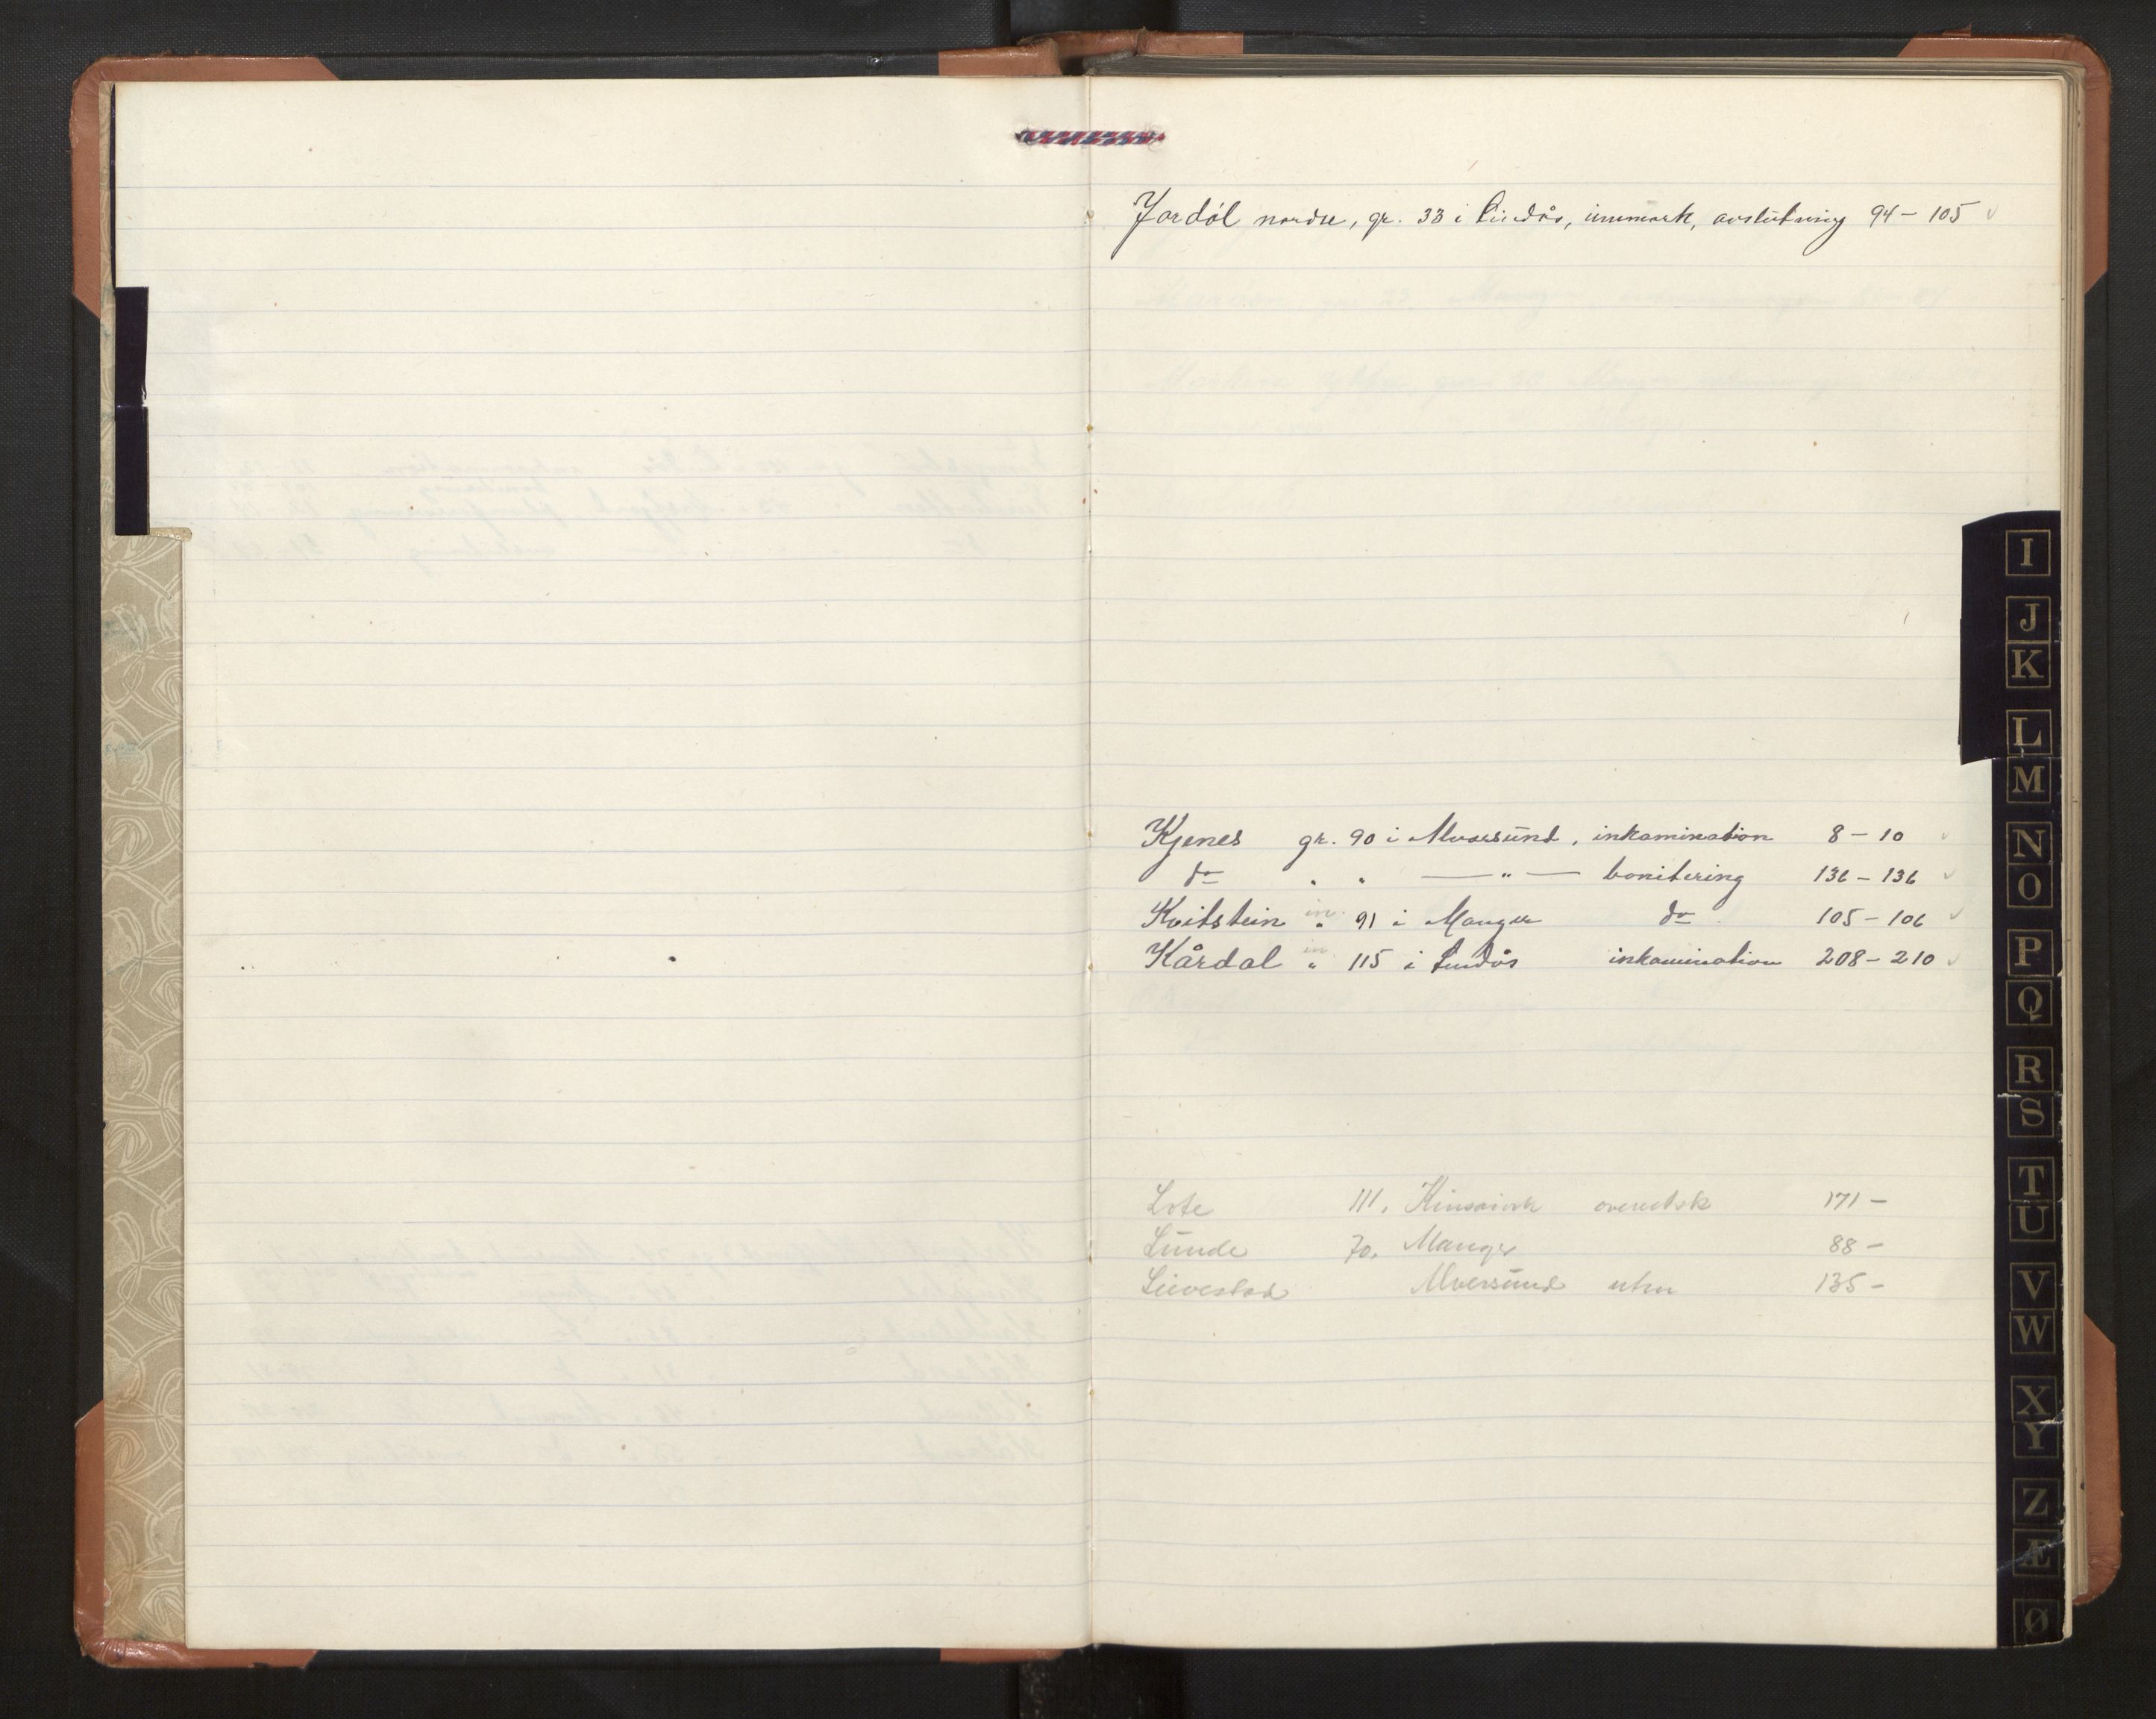 Jordål nordre, gr. 33 i Lindås, innmark, avslutning 94 – 105 ✓
Kjenes gr. 90 i Alversund, inkamination 8 – 10 ✓
do " " — " — bonitering 136 – 136 ✓
Kvitstein in " 91 i Manger do 105 – 106 ✓
Kårdal in " 115 i Lindås inkamination 208 – 210 ✓
Lote 111, Kinsarvik overutsk 171 –
Lunde 70, Manger 88 –
Alversund utm 135 –
I
J
K
L
M
N
O
P
Q
R
S
T
U
V
W
X
Y
Z
Æ
Ø